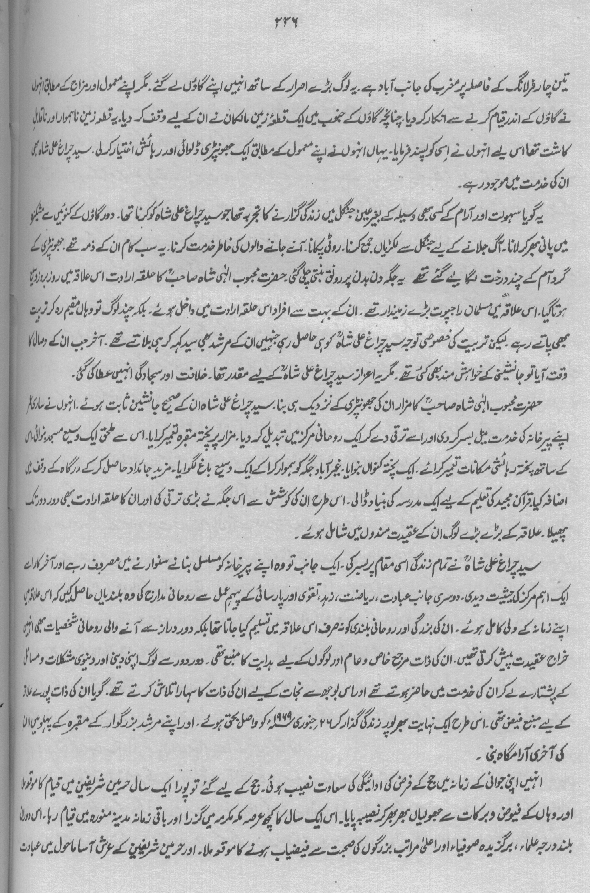 ۲۳۶
تین چار فرلانگ کے فاصلہ پر مغرب کی جانب آباد ہے۔ یہ لوگ بڑے اصرار کے ساتھ انہیں اپنے گاؤں لے گئے۔ مگر اپنے معمول اور مزاج کے مطابق انہوں
نے گاؤں کے اندر قیام کرنے سے انکار کر دیا۔ چنانچہ گاؤں کے جنوب میں ایک قطعۂ زمین مالکان نے ان کے لیے وقف کر دیا۔ یہ قطعہ زمین ناہموار اور ناقابل
کاشت تھا اس لیے انہوں نے اسی کو پسند فرمایا۔ یہاں انہوں نے اپنے معمول کے مطابق ایک جھونپڑی ڈلوائی اور رہائش اختیار کر لی۔ سید چراغ علی شاہ بھی
ان کی خدمت میں موجود رہے۔
یہ گویا سہولت اور آرام کے کسی بھی وسیلہ کے بغیر عین جنگل میں زندگی گزارنے کا تجربہ تھا جو سید چراغ علی شاہ کو کرنا تھا۔ دور گاؤں کے کنوئیں سے مشکیزہ
میں پانی بھر کر لانا، آگ جلانے کے لیے جنگل سے لکڑیاں جمع کرنا، روٹی پکانا، آنے جانے والوں کی خاطر خدمت کرنا۔ یہ سب کام ان کے ذمہ تھے۔ جھونپڑی کے
گرد آم کے چند درخت لگا لیے گئے تھے یہ جگہ دن بدن پر رونق بنتی چلی گئی۔ حضرت محبوب الٰہی شاہ صاحبؒ کا حلقہ ارادت اس علاقہ میں روز بروز وسیع
ہوتا گیا۔ اس علاقہ میں مسلمان راجپوت بڑے زمیندار تھے۔ ان کے بہت سے افراد اس حلقہ ارادت میں داخل ہوئے۔ بلکہ چند لوگ تو وہاں مقیم رہ کر تربیت
بھی پاتے رہے۔ لیکن تربیت کی خصوصی توجہ سید چراغ علی شاہؒ کو ہی حاصل رہی جنہیں ان کے مرشد بھی سید کہہ کر ہی بلاتے تھے۔ آخر جب ان کے وصال کا
وقت آیا تو جانشینی کے خواہش مند بھی کئی تھے۔ مگر یہ اعزاز سید چراغ علی شاہؒ کے لیے مقدر تھا۔ خلافت اور سجادگی انہیں عطا کی گئی۔
حضرت محبوب الٰہی شاہ صاحبؒ کا مزار ان کی جھونپڑی کے نزدیک ہی بنا۔ سید چراغ علی شاہ ان کے صحیح جانشین ثابت ہوئے۔ انہوں نے ساری عمر
اپنے پیر خانہ کی خدمت میں بسر کر دی اور اسے ترقی دے کر ایک روحانی مرکز میں تبدیل کر دیا۔ مزار پر پختہ مقبرہ تعمیر کرایا۔ اس سے ملحق ایک وسیع مسجد بنوائی، اس
کے ساتھ پختہ رہائشی مکانات تعمیر کرائے۔ ایک پختہ کنواں بنوایا۔ غیر آباد جگہ کو ہموار کرا کے ایک وسیع باغ لگوایا۔ مزید جائداد حاصل کر کے درگاہ کے وقف میں
اضافہ کیا۔ قرآن مجید کی تعلیم کے لیے ایک مدرسہ کی بنیاد ڈالی۔ اس طرح ان کی کوشش سے اس جگہ نے بڑی ترقی کی اور ان کا حلقہ ارادت بھی دور دور تک
پھیلا۔ علاقہ کے بڑے بڑے لوگ ان کے عقیدت مندوں میں شامل ہوئے۔
سید چراغ علی شاہؒ نے تمام زندگی اسی مقام پر بسر کی۔ ایک جانب تو وہ اپنے پیر خانہ کو مسلسل بنانے سنوارنے میں مصروف رہے اور آخر کار اسے
ایک اہم مرکز کی حیثیت دیدی۔ دوسری جانب عبادت، ریاضت، زہد، تقوی اور پارسائی کے پیہم عمل سے روحانی مدارج کی وہ بلندیاں حاصل کیں کہ اس علاقہ میں
اپنے زمانہ کے ولی کامل ہوئے۔ ان کی بزرگی اور روحانی بلندی کو نہ صرف اس علاقہ میں تسلیم کیا جاتا تھا بلکہ دور دراز سے آنے والی روحانی شخصیات بھی انہیں
خراج عقیدت پیش کرتی تھیں۔ ان کی ذات مرجع خاص و عام اور لوگوں کے لیے ہدایت کا منبع تھی۔ دور دور سے لوگ اپنی دینی اور دنیوی مشکلات و مسائل
کے پشتارے لے کر ان کی خدمت میں حاضر ہوتے تھے اور اس بوجھ سے نجات کے لیے ان کی ذات کا سہارا تلاش کرتے تھے۔ گویا ان کی ذات پورے علاقہ
کے لیے منبع فیض تھی۔ اسی طرح ایک نہایت بھرپور زندگی گذار کر ۲۶ جنوری ۱۹۶۹ء کو واصل بحق ہوئے۔ اور اپنے مرشد بزرگوار کے مقبرہ کے پہلو میں ان
کی آخری آرام گاہ بنی۔
انہیں اپنی جوانی کے زمانہ میں حج کے فرض کی ادائیگی کی سعادت نصیب ہوئی۔ حج کے لیے گئے تو پورا ایک سال حرمین شریفین میں قیام کا موقع ملا
اور وہاں کے فیوض و برکات سے جھولیاں بھر بھر کر نصیبہ پایا۔ اس ایک سال کا کچھ عرصہ مکہ مکرمہ میں گذرا اور باقی زمانہ مدینہ منورہ میں قیام رہا۔ اس دوران
بلند درجہ علماء، برگزیدہ صوفیاء اور اعلیٰ مراتب بزرگوں کی صحبت سے فیضیاب ہونے کا موقع ملا۔ اور حرمین شریفین کے عرش آسا ماحول میں عبادت